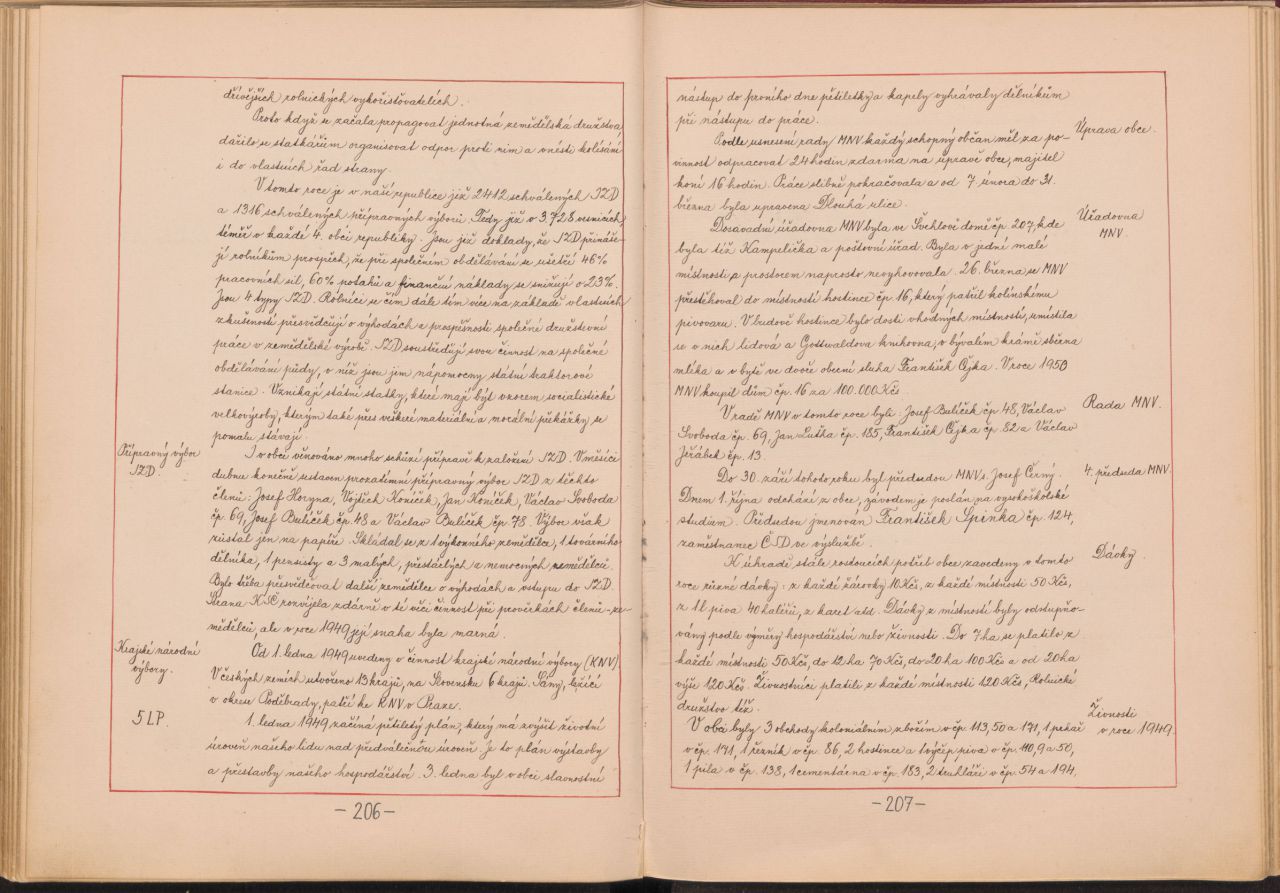 dřívějších rolnických vykořisťovatelích.
Proto když se začala propagovat jednotná zemědělská družstva
dařilo se statkářům organisovat odpor proti nim a vnésti kolísání
i do vlastních řad strany.
V tomto roce je v naší republice již 2412 schválených JZD
a 1316 schválených přípravných výborů. Tedy již v 3.728 vesnicích,
téměř v každé 4. obci republiky. Jsou již doklady, že JZD přináše-
jí rolníkům prospěch, že při společném obdělávání se ušetří 46%
pracovních sil, 60% potahů a finanční náklady se snižují o 23%.
Jsou 4 typy JZD. Rolníci se čím dále tím více na základě vlastních
zkušeností přesvědčují o výhodách a prospěšnosti společné družstevní
práce v zemědělské výrobě. JZD soustřeďují svou činnost na společné
obdělávání půdy, v níž jsou jim nápomocny státní traktorové
stanice. Vznikají státní statky, které mají být vzorem socialistické
velkovýroby, kterým také přes veškeré materiální a morální překážky se
pomalu stávají.
Přípravný výbor
JZD
I v obci věnováno mnoho schůzí přípravě k založení JZD. V měsíci
dubnu konečně ustaven prozatímní přípravný výbor JZD z těchto
členů: Josef Horyna, Vojtěch Koníček, Jan Koníček, Václav Svoboda
čp. 69, Josef Bulíček čp. 48 a Václav Bulíček čp. 78. Výbor však
zůstal jen na papíře. Skládal se z 1 výkonného zemědělce, 1 továrního
dělníka, 1 pensisty a 3 malých, přestárlých a nemocných zemědělců.
Bylo třeba přesvědčovat další zemědělce o výhodách a vstupu do JZD.
Strana KSČ rozvíjela zdárně v té věci činnost při prověrkách členů-ze-
mědělců, ale v roce 1949 její snaha byla marná.
Krajské národní
výbory.
Od 1. ledna 1949 uvedeny v činnost krajské národní výbory (KNV).
V českých zemích utvořeno 13 krajů, na Slovensku 6 krajů. Sány, ležící
v okrese Poděbrady, patří ke KNV v Praze.
5LP.
1. ledna 1949 začíná pětiletý plán, který má zvýšit životní
úroveň našeho lidu nad předválečnou úroveň. Je to plán výstavby
a přestavby našeho hospodářství. 3. ledna byl v obci slavnostní
-206-
nástup do prvního dne pětiletky a kapely vyhrávaly dělníkům
při nástupu do práce.
Úprava obce.
Podle usnesení rady MNV každý schopný občan měl za po-
vinnost odpracovat 24 hodin zdarma na úpravě obce, majitel
koní 16 hodin. Práce slibně pokračovala a od 7 února do 31.
března byla upravena Dlouhá ulice.
Úřadovna
MNV.
Dosavadní úřadovna MNV byla ve Švehlově domě čp. 207, kde
byla též Kampelička a poštovní úřad. Byla v jedné malé
místnosti a prostorem naprosto nevyhovovala. 26. března se MNV
přestěhoval do místností hostince čp. 16, který patřil kolínskému
pivovaru. V budově hostince bylo dosti vhodných místností, umístila
se v nich lidová a Gottwaldova knihovna, v bývalém krámě sběrna
mléka a v bytě ve dvoře obecní sluha František Čejka. V roce 1950
MNV koupil dům čp. 16 za 100.000 Kčs
Rada MNV.
V radě MNV v tomto roce byli: Josef Bulíček čp 48, Václav
Svoboda čp. 69, Jan Lutka čp. 185, František Čejka čp. 82 a Václav
Jeřábek čp. 13.
4. předseda MNV.
Do 30. září tohoto roku byl předsedou MNV s. Josef Černý.
Dnem 1. října odchází z obce, závodem je poslán na vysokoškolské
studium. Předsedou jmenován František Špinka čp. 124,
zaměstnanec ČSD ve výslužbě.
Dávky.
K úhradě stále rostoucích potřeb obce zavedeny v tomto
roce různé dávky: z každé žárovky 10 Kčs, z každé místnosti 50 Kčs,
z 1 l piva 40 haléřů, z karet atd. Dávky z místností byly odstupňo-
vány podle výměry hospodářství nebo živnosti. Do 7 ha se platilo z
každé místnosti 50 Kčs, do 12 ha 70 Kčs, do 20 ha 100 Kčs a od 20 ha
výše 120 Kčs. Živnostníci platili z každé místnosti 120 Kčs, Rolnické
družstvo též.
Živnosti
v roce 1949
V obci byly 3 obchody koloniálním zbožím v čp. 113, 50 a 171, 1 pekař
v čp. 171, 1 řezník v čp. 86, 2 hostince a 1 výčep piva v čp. 110, 9 a 50,
1 pila v čp. 138, 1 cementárna v čp. 183, 2 truhláři v čp. 54 a 194,
-207-